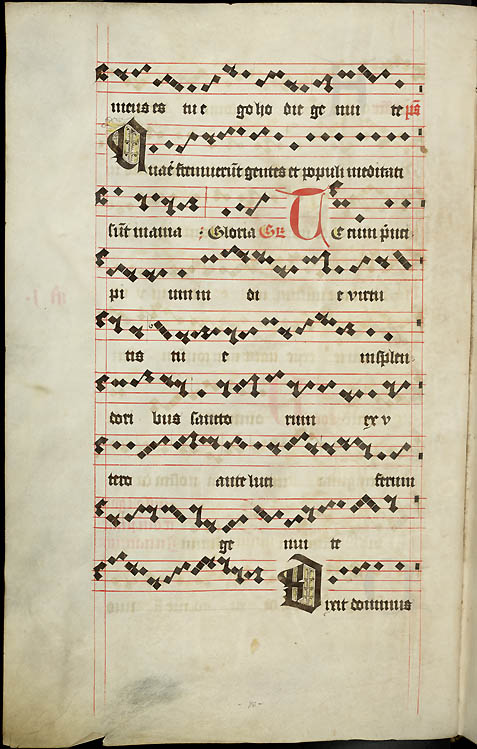 meus es tu e go ho die ge nui te ps̄
Quare fremuerūt gentes et populi meditati
sūt inania : Gloria GR Tecum princi
pi um in di e virtu
tis tu e in splen
dori bus sancto rum ex v
tero ante luci ferum
ge nui te
Dixit dominus